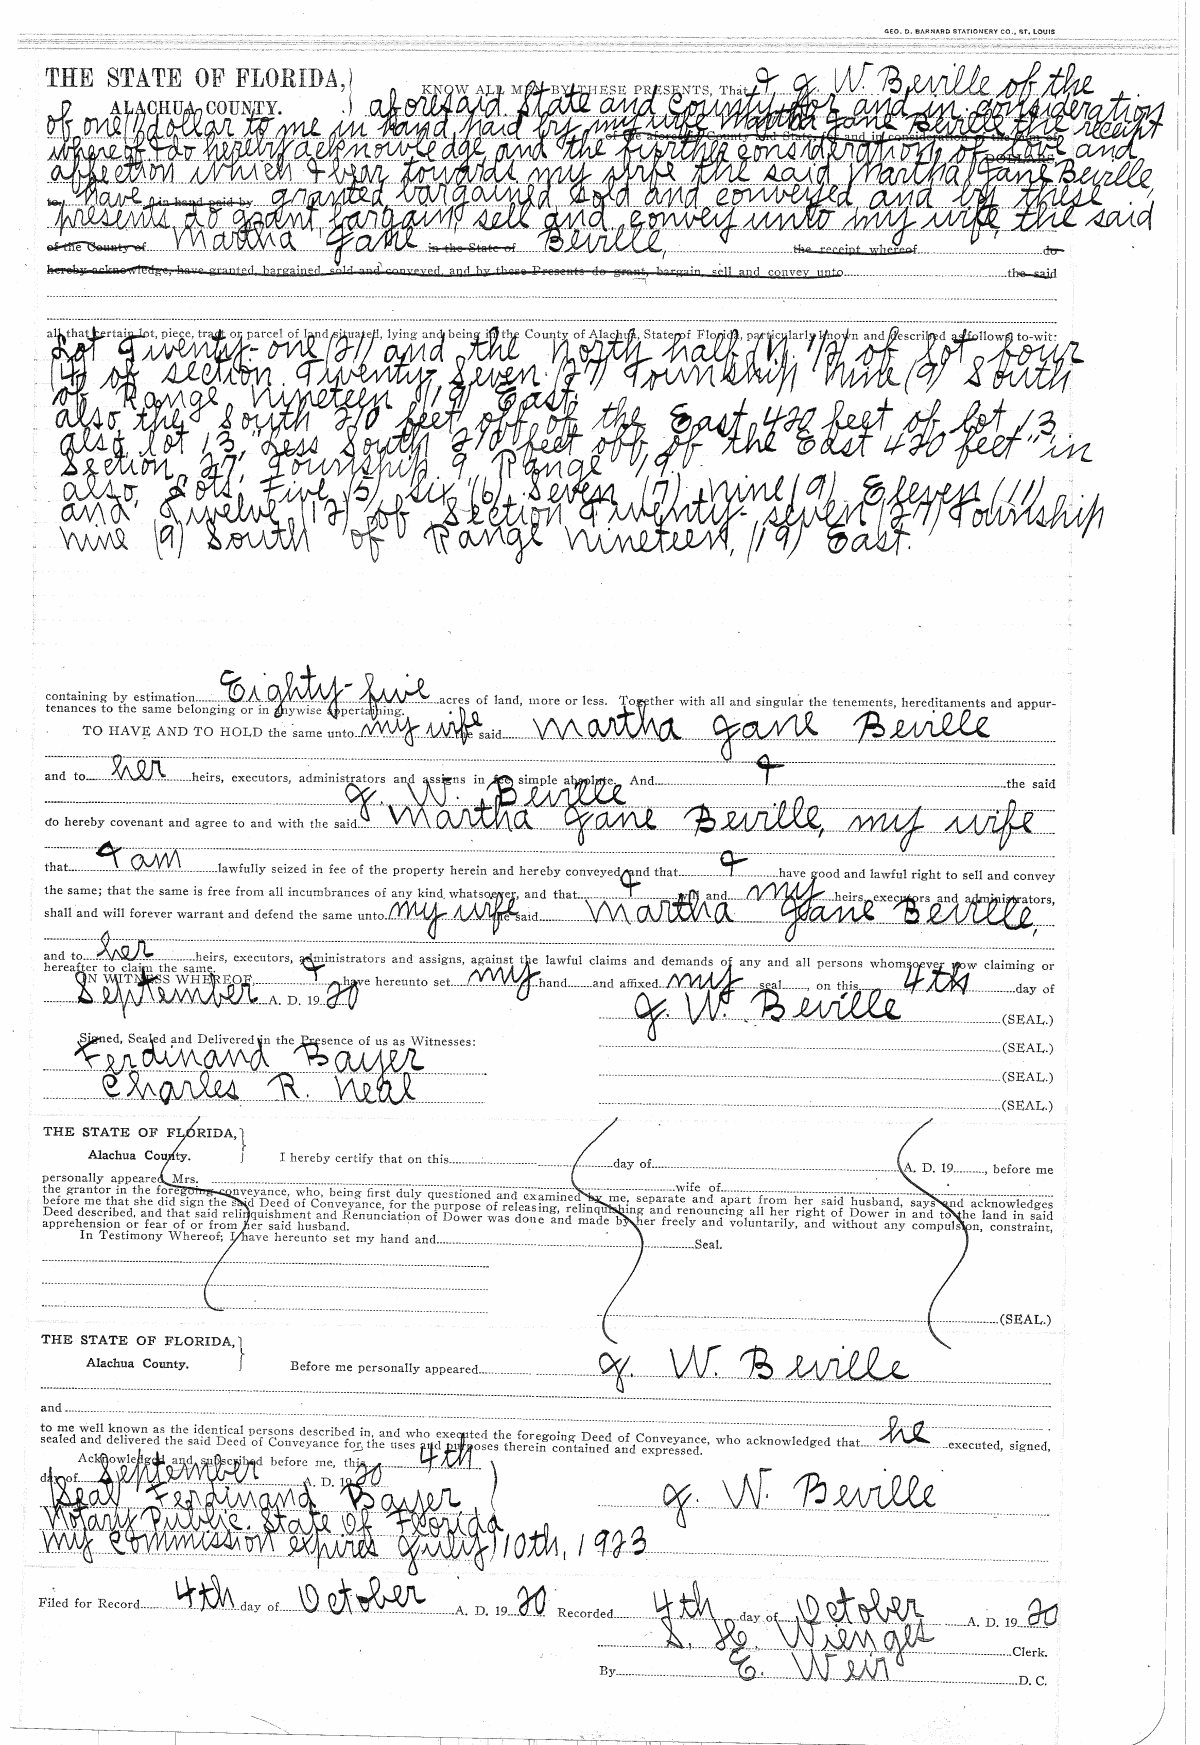 GEO. D. BARNARD STATIONERY CO., ST. LOUIS
THE STATE OF FLORIDA,
KNOW ALL MEN BY THESE PRESENTS, That I, J. W. Beville of the
ALACHUA COUNTY. aforesaid State and County, for and in consideration
of one dollar to me in hand paid by my wife Martha Jane Beville the receipt
of the aforesaid County and State, for and in consideration of the sum of
whereof I do hereby acknowledge and the further consideration of love and
DOLLARS
affection which I bear towards my wife the said Martha Jane Beville,
to have in hand paid by granted bargained sold and conveyed and by these
presents do grant bargain sell and convey unto my wife, the said
of the County of Martha Jane in the State of Beville, the receipt whereof do
hereby acknowledge, have granted, bargained, sold and conveyed, and by these Presents do grant, bargain, sell and convey unto the said
all that certain lot, piece, tract or parcel of land situated, lying and being in the County of Alachua, State of Florida, particularly known and described as follows to-wit:
Lot Twenty-one (21) and the North half (N. 1/2) of Lot four
(4) of section Twenty Seven (27) Township Nine (9) South
of Range nineteen (19) East.
also the South 210 feet off of the East 420 feet of lot 13
also lot 13, "Less South 210 feet off of the East 420 feet" in
Section 27, Township 9 Range 19.
also Lots Five (5) six (6) Seven (7) nine (9) Eleven (11)
and Twelve (12) of Section Twenty-seven (27) Township
nine (9) South of Range nineteen, (19) East.
containing by estimation Eighty-five acres of land, more or less. Together with all and singular the tenements, hereditaments and appur-
tenances to the same belonging or in anywise appertaining.
TO HAVE AND TO HOLD the same unto my wife said Martha Jane Beville
and to her heirs, executors, administrators and assigns in fee simple absolute. And I the said
J. W. Beville
do hereby covenant and agree to and with the said Martha Jane Beville, my wife
that I am lawfully seized in fee of the property herein and hereby conveyed and that I have good and lawful right to sell and convey
the same; that the same is free from all incumbrances of any kind whatsoever, and that I will and my heirs, executors and administrators,
shall and will forever warrant and defend the same unto my wife said Martha Jane Beville,
and to her heirs, executors, administrators and assigns, against the lawful claims and demands of any and all persons whomsoever now claiming or
hereafter to claim the same.
IN WITNESS WHEREOF, I have hereunto set my hand and affixed my seal, on this 4th day of
September A. D. 19 20 J. W. Beville (SEAL.)
Signed, Sealed and Delivered in the Presence of us as Witnesses: (SEAL.)
Ferdinand Bayer (SEAL.)
Charles R. Neal (SEAL.)
THE STATE OF FLORIDA,
Alachua County. I hereby certify that on this day of A. D. 19 , before me
personally appeared Mrs. wife of
the grantor in the foregoing conveyance, who, being first duly questioned and examined by me, separate and apart from her said husband, says and acknowledges
before me that she did sign the said Deed of Conveyance, for the purpose of releasing, relinquishing and renouncing all her right of Dower in and to the land in said
Deed described, and that said relinquishment and Renunciation of Dower was done and made by her freely and voluntarily, and without any compulsion, constraint,
apprehension or fear of or from her said husband.
In Testimony Whereof; I have hereunto set my hand and Seal.
(SEAL.)
THE STATE OF FLORIDA,
Alachua County. Before me personally appeared J. W. Beville
and
to me well known as the identical persons described in, and who executed the foregoing Deed of Conveyance, who acknowledged that he executed, signed,
sealed and delivered the said Deed of Conveyance for the uses and purposes therein contained and expressed.
Acknowledged and subscribed before me, this 4th
day of September A. D. 19 20
Seal Ferdinand Bayer J. W. Beville
Notary Public. State of Florida
My Commission expires July 10th, 1923
Filed for Record 4th day of October A. D. 19 20 Recorded 4th day of October A. D. 19 20
S. H. Wienges Clerk.
By E. Weir D. C.